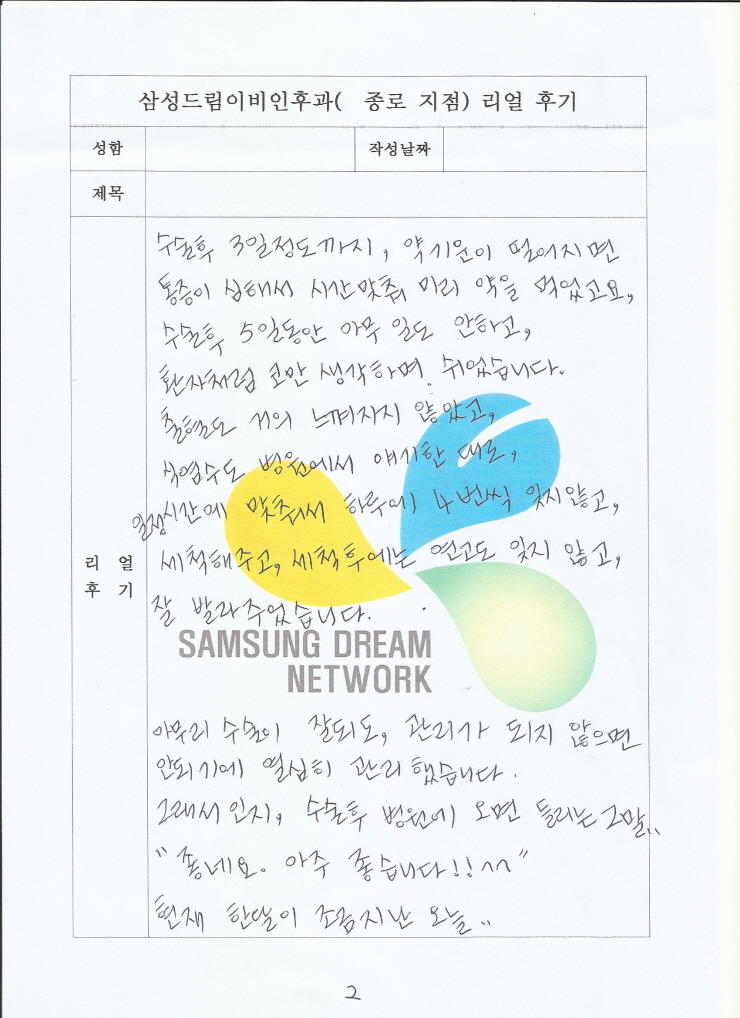 삼성드림이비인후과( 종로 지점) 리얼 후기
성함
작성날짜
제목
리 얼
후 기
수술후 3일정도까지, 약기운이 떨어지면
통증이 심해서 시간맞춰 미리 약을 먹었고요,
수술후 5일동안 아무 일도 안하고,
환자처럼 코만 생각하며 쉬었습니다.
출혈도 거의 느껴지지 않았고,
식염수도 병원에서 얘기한 대로,
일정시간에 맞춰서 하루에 4번씩 잊지않고,
세척해주고, 세척후에는 연고도 잊지 않고,
잘 발라주었습니다.
SAMSUNG DREAM
NETWORK
아무리 수술이 잘되도, 관리가 되지 않으면
안되기에 열심히 관리했습니다.
그래서인지, 수술후 병원에 오면 들리는 그말..
"좋네요. 아주 좋습니다!!^^"
현재 한달이 조금지난 오늘..
2